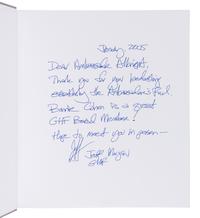 January 2005
Dear Ambassador Albright,
Thank you for your
establishing the Ambassador's Fund.
is a great
GHF Board Member!
Hope to meet you in person —
Jeff Morgan
GHF